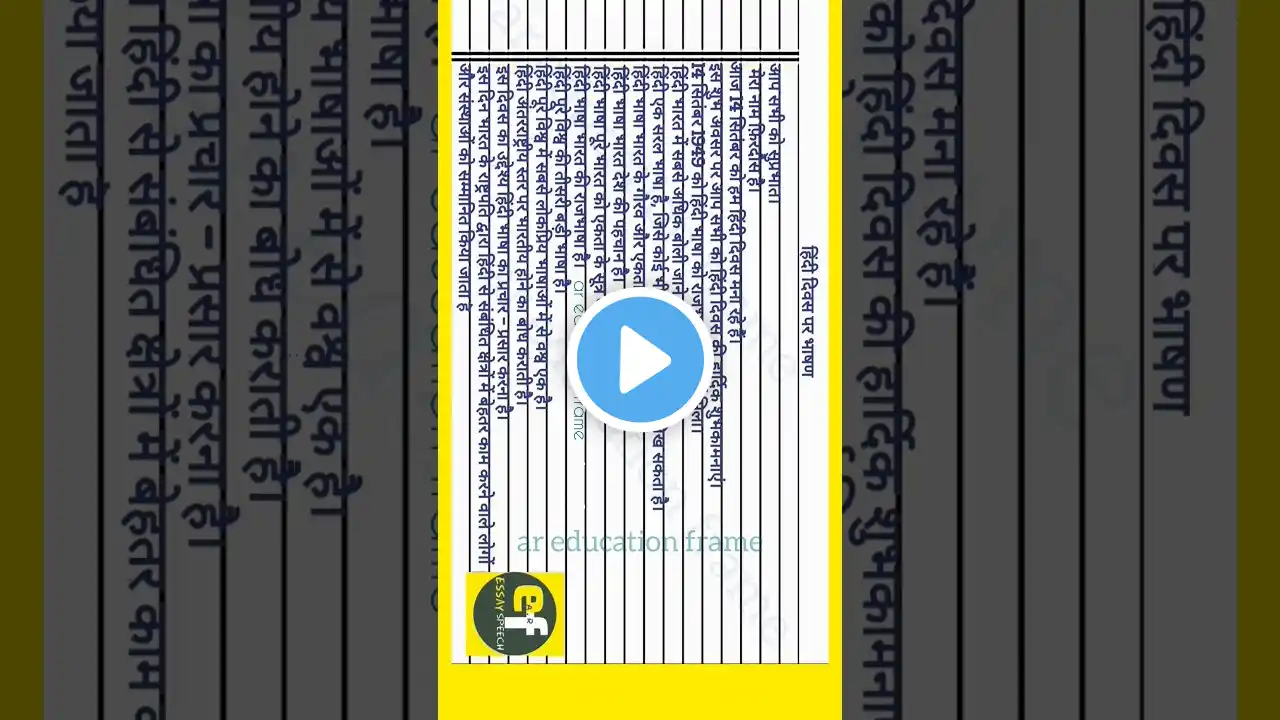 हिंदी दिवस पर भाषण
आप सभी को सुप्रभात।
मेरा नाम फ़िरदौस है।
आज 14 सितंबर को हम हिंदी दिवस मना रहे हैं।
इस शुभ अवसर पर आप सभी को हिंदी दिवस की हार्दिक शुभकामनाएं।
14 सितंबर 1949 को हिंदी भाषा को मिला।
हिंदी भारत में सबसे अधिक बोली जाने
हिंदी एक सरल भाषा है, जिसे कोई भी सकता है।
हिंदी भाषा भारत के गौरव और एकता
हिंदी भाषा भारत देश की पहचान है
हिंदी भाषा पूरे भारत को एकता के सूत्र
हिंदी भाषा भारत की राजभाषा है
हिंदी पूरे विश्व की तीसरी बड़ी भाषा है।
हिंदी पूरे विश्व में सबसे लोकप्रिय भाषाओं में से एक है।
हिंदी अंतरराष्ट्रीय स्तर पर भारतीय होने का बोध कराती है।
इस दिवस का उद्देश्य हिंदी भाषा का प्रचार – प्रसार करना है।
इस दिन भारत के राष्ट्रपति द्वारा हिंदी से संबंधित क्षेत्रों में बेहतर काम करने वाले लोगों
और संस्थाओं को सम्मानित किया जाता है
ar education frame
ef
A.R
ESSAY SPEECH
हिंदी दिवस पर भाषण
दिवस मना रहे हैं।
को हिंदी दिवस की हार्दिक
भाषा है।
भाषाओं में से एक है।
होने का बोध कराती है।
का प्रचार – प्रसार करना है।
हिंदी से संबंधित क्षेत्रों में बेहतर काम
जाता है